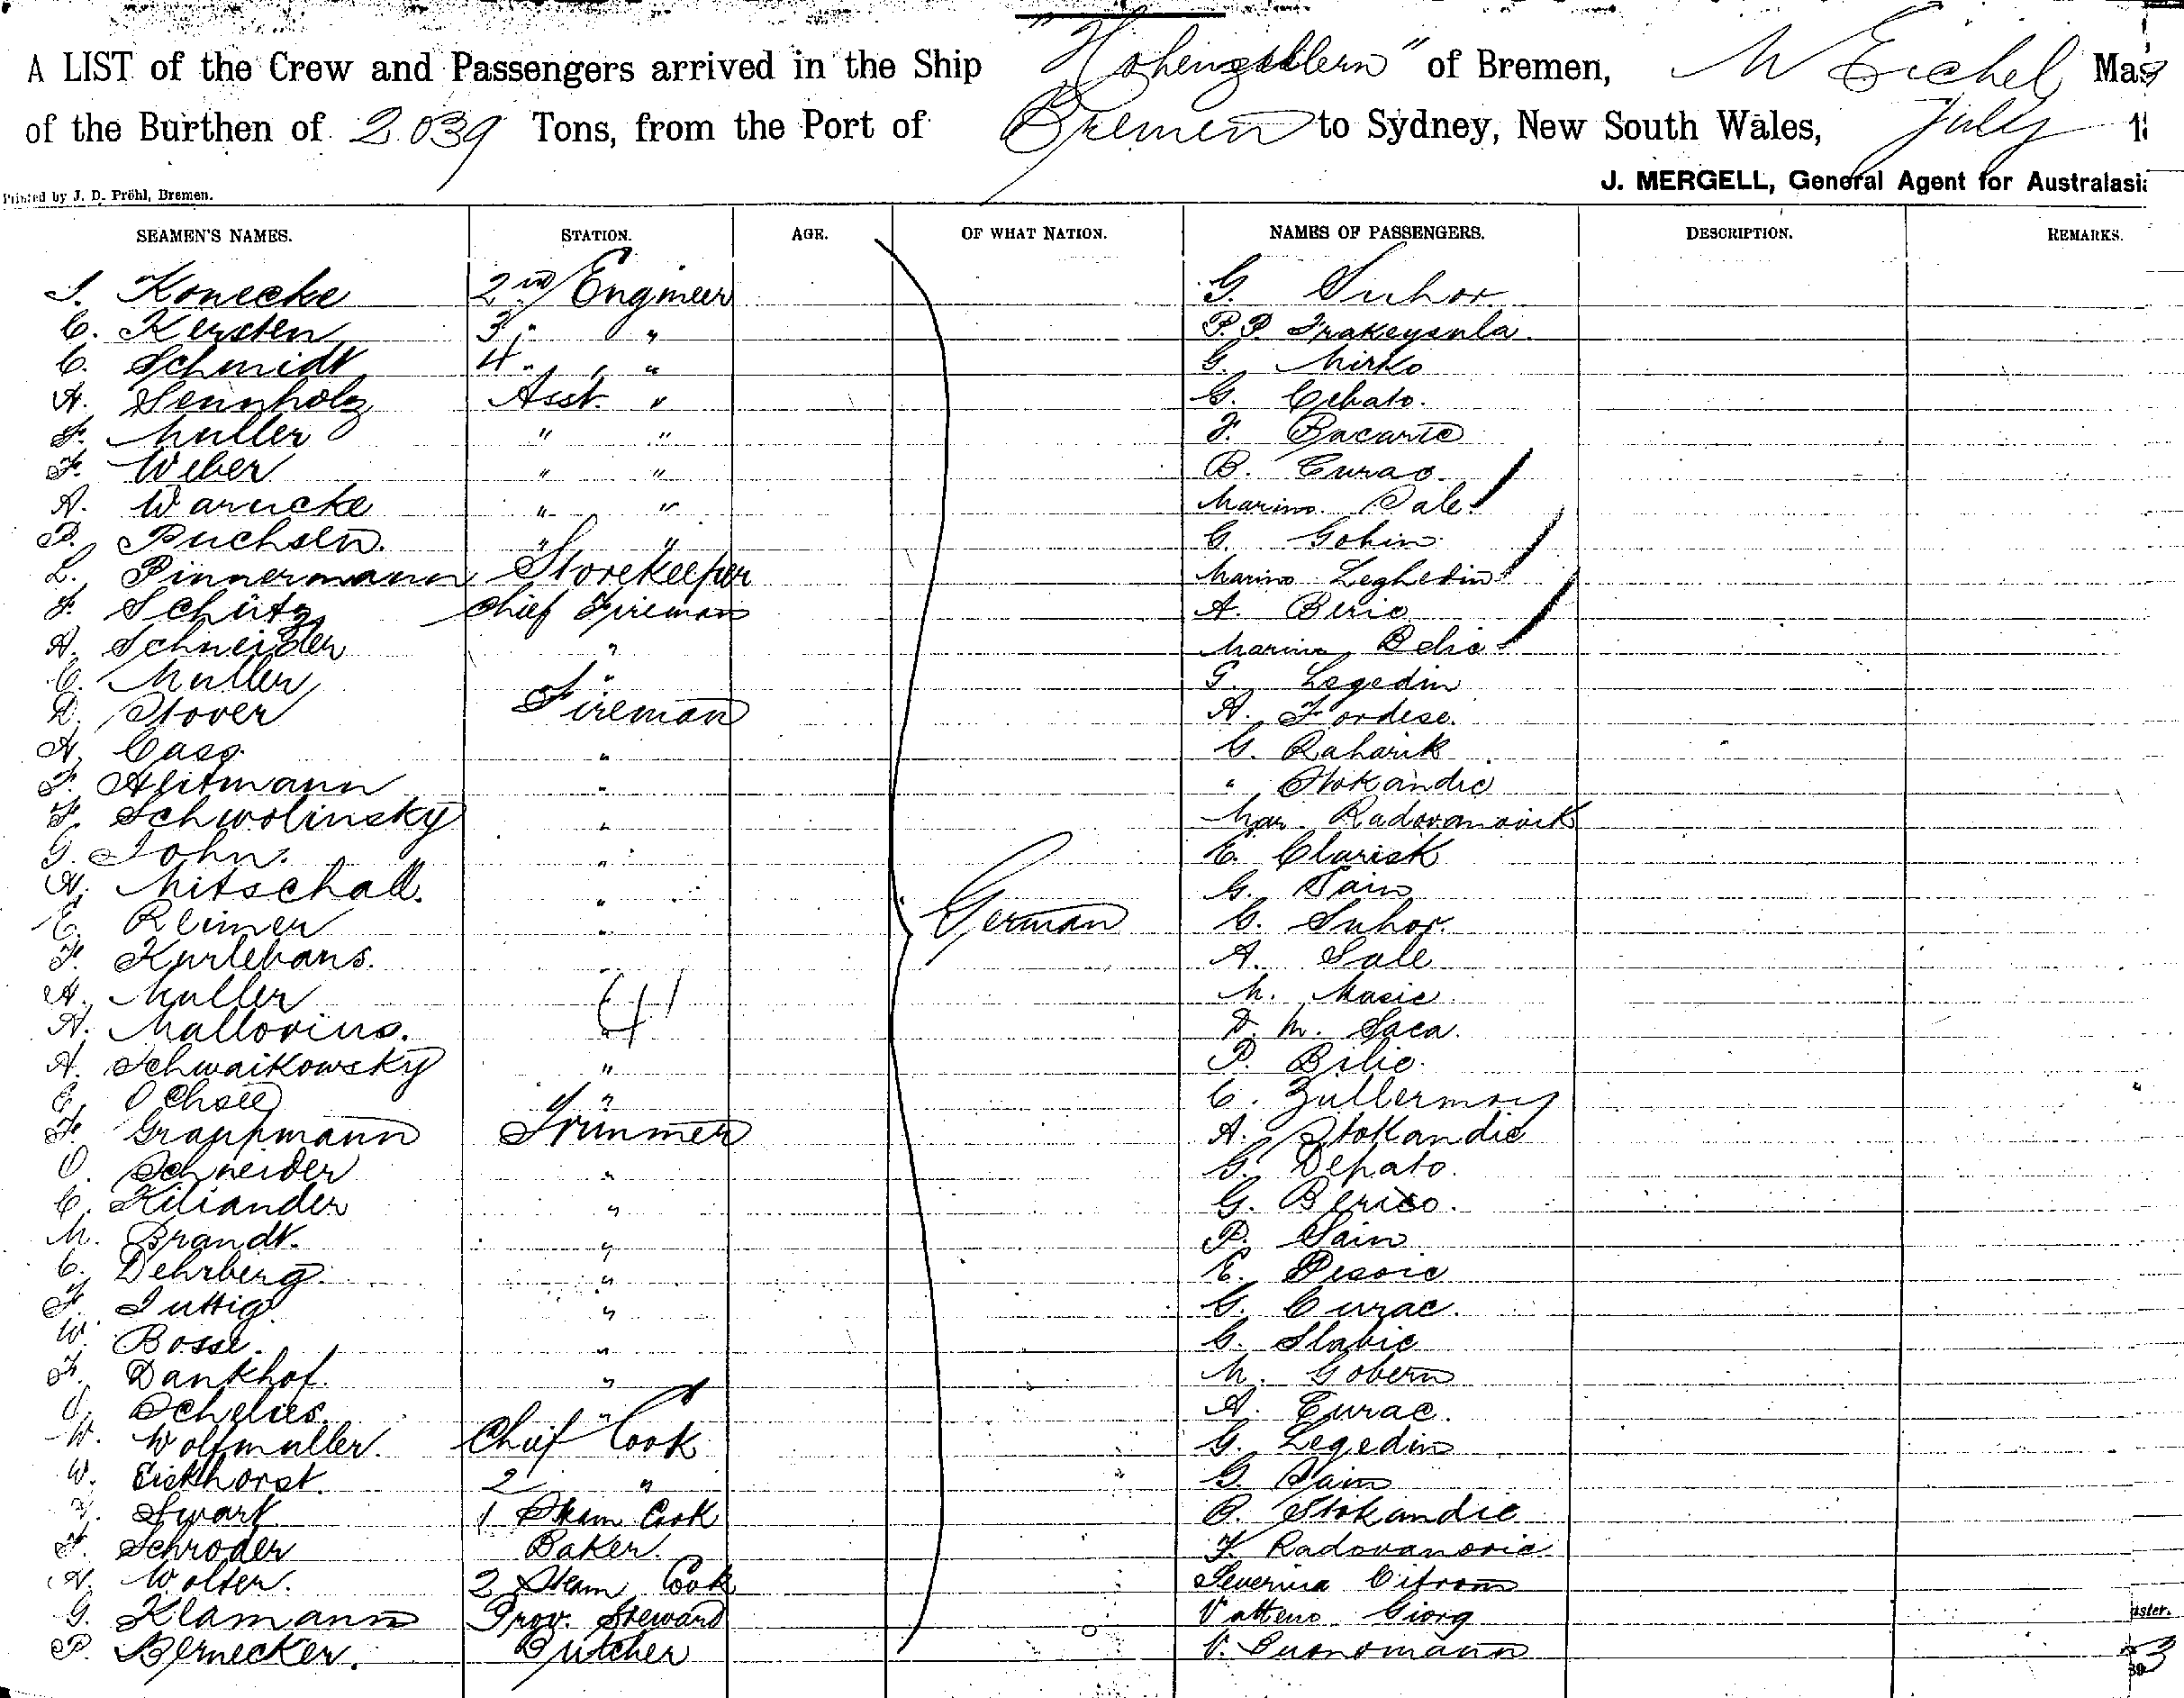 A LIST of the Crew and Passengers arrived in the Ship "Hohenzollern" of Bremen, W Eichel Mas
of the Burthen of 2039 Tons, from the Port of Bremen to Sydney, New South Wales, July 1
J. MERGELL, General Agent for Australasia
Printed by J. D. Pröhl, Bremen.
SEAMEN'S NAMES. STATION. AGE. OF WHAT NATION. NAMES OF PASSENGERS. DESCRIPTION. REMARKS.
J. Konecke 2nd Engineer G. Suhor
C. Kersten 3 " " P. P.
C. Schmidt 4 " " G. Mirko
A. Sennholz Asst. " G. Cebalo.
F. Muller " " F. Bacaric
F. Weber " " B. Curac
A. Warncke " " Marino Sale
P. Puchsen. " " G. Gohin
L. Pinnermann Storekeeper Marino Leghedin
F. Schütz Chief Fireman A. Beric
A. Schneider " Marino Belic
C. Muller " G. Legedin
D. Stover Fireman A. Fordese.
A. Casg. " G. Raharik
F. Heitmann " " Stokandic
F. Schwolinsky " Mar. Radovanovik
G. John. " E. Clarisk
A. Mitschall. " G. Sain
E. Reimer " German G. Suhor.
F. Kurlebans. " A. Sale
A. Muller 41 M. Masic
A. Mallovius. " D. M. Saca.
A. Schwaikowsky " P. Bilic.
E. Ochsee " C.
F. Grappmann Trimmer A. Stokandic
O. Schneider " G. Depalo.
C. Kiliander " G. Berico.
M. Brandt. " P. Sain
C. Dehrberg. " E.
F. Juttig " G. Curac.
W. Bosse. " G. Slabic
F. Dankhof. " M. Gobern
O. Schelies. " A. Curac.
W. Wolfmuller. Chief Cook G. Legedin
W. Eickhorst. 2 " G. Sain
Swart 1 Steam Cook B. Stokandic
F. Schroder Baker. F. Radovanovic
A. Wolter. 2 Steam Cook Severina Citrom
G. Klamann Prov. Steward Vatteno Giorg
P. Bernecker. Butcher V.